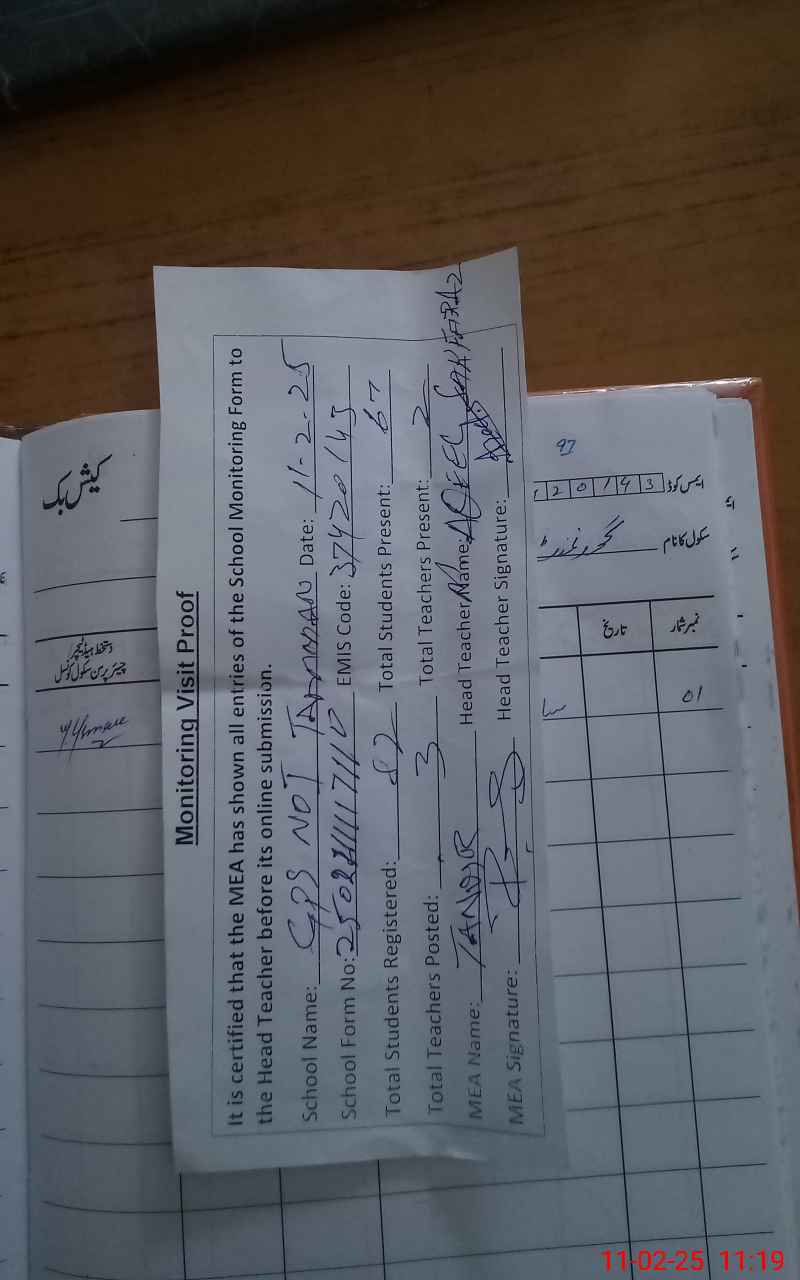 Monitoring Visit Proof
It is certified that the MEA has shown all entries of the School Monitoring Form to
the Head Teacher before its online submission.
School Name: GPS NOT TAMMAN Date: 11-2-25
School Form No: EMIS Code: 37420143
Total Students Registered: 82 Total Students Present: 67
Total Teachers Posted: 3 Total Teachers Present: 2
MEA Name: Head Teacher Name: AQEEL
MEA Signature: Head Teacher Signature:
کیش بک
دستخط ہیڈٹیچر/
چیئرپرسن سکول کونسل
97
ایمس کوڈ 2 0 1 4 3
سکول کا نام گورنمنٹ
نمبر شمار تاریخ
01
11-02-25 11:19